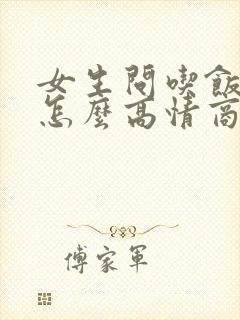 女生問喫飯
怎麼高情商
傅家軍